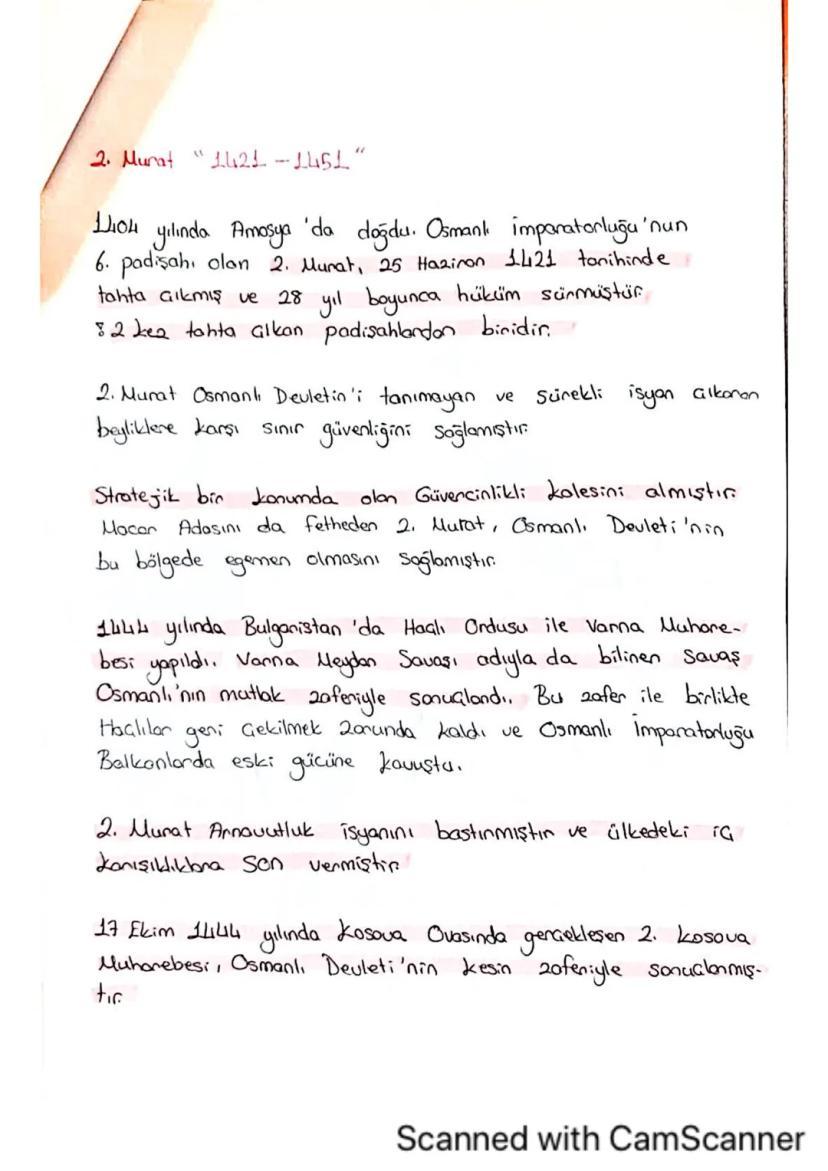 2. Murat "1421 - 1451"
1404 yılında Amasya 'da doğdu. Osmanlı imparatorluğu'nun
6. padişahı olan 2. Murat, 25 Haziran 1421 tarihinde
tahta çıkmış ve 28 yıl boyunca hüküm sürmüştür.
2 kez tahta çıkan padişahlardan biridir.
2. Murat Osmanlı Devletin'i tanımayan ve sürekli isyan çıkaran
beyliklere karşı sınır güvenliğini sağlamıştır.
Stratejik bir konumda olan Güvercinlikli kalesini almıştır.
Macar Adasını da fetheden 2. Murat, Osmanlı Devleti'nin
bu bölgede egemen olmasını sağlamıştır.
1444 yılında Bulgaristan 'da Haçlı Ordusu ile Varna Muhare-
besi yapıldı. Varna Meydan Savaşı adıyla da bilinen savaş
Osmanlı'nın mutlak zaferiyle sonuçlandı. Bu zafer ile birlikte
Haçlılar geri çekilmek zorunda kaldı ve Osmanlı İmparatorluğu
Balkanlarda eski gücüne kavuştu.
2. Murat Arnavutluk isyanını bastırmıştır ve ülkedeki iç
karışıklıklara son vermiştir.
17 Ekim 1444 yılında Kosova Ovasında gerçekleşen 2. Kosova
Muharebesi, Osmanlı Devleti'nin kesin zaferiyle sonuçlanmış-
tır.
Scanned with CamScanner